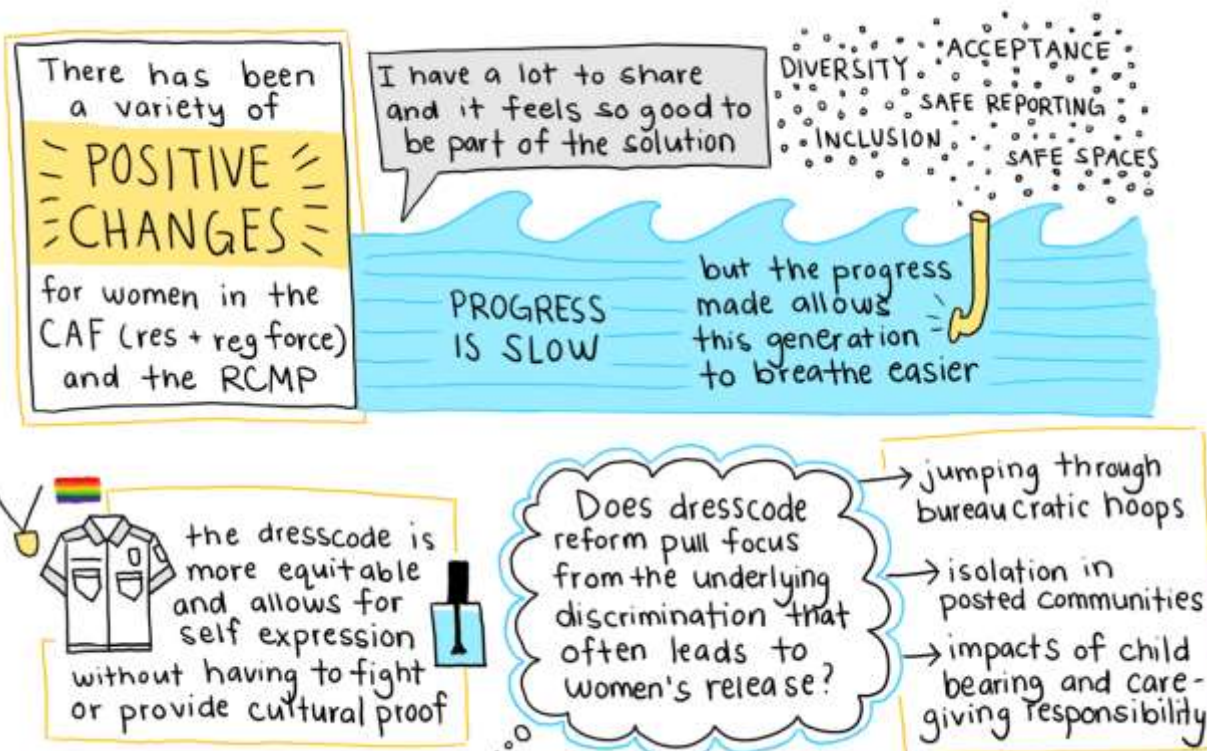 There has been
a variety of
POSITIVE
CHANGES
for women in the
CAF (res + reg force)
and the RCMP
I have a lot to share
and it feels so good to
be part of the solution
DIVERSITY
ACCEPTANCE
SAFE REPORTING
INCLUSION
SAFE SPACES
PROGRESS
IS SLOW
but the progress
made allows
this generation
to breathe easier
the dresscode is
more equitable
and allows for
self expression
without having to fight
or provide cultural proof
Does dresscode
reform pull focus
from the underlying
discrimination that
often leads to
women's release?
jumping through
bureaucratic hoops
isolation in
posted communities
impacts of child
bearing and care-
giving responsibility